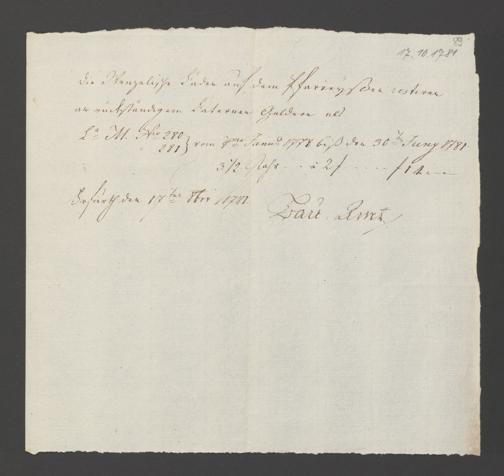 89
17.10.1781
die Wenzelische Laden auf dem Pfarreysen restiren
an rückständigem Laternen Geldern als
La M. No 280
281 } vom 1ten Janu 1778 biß den 30ten Juny 1781
3 1/2 Jahr - - a 2 f - - - - f 14 - -
den 17ten 8bri 1781